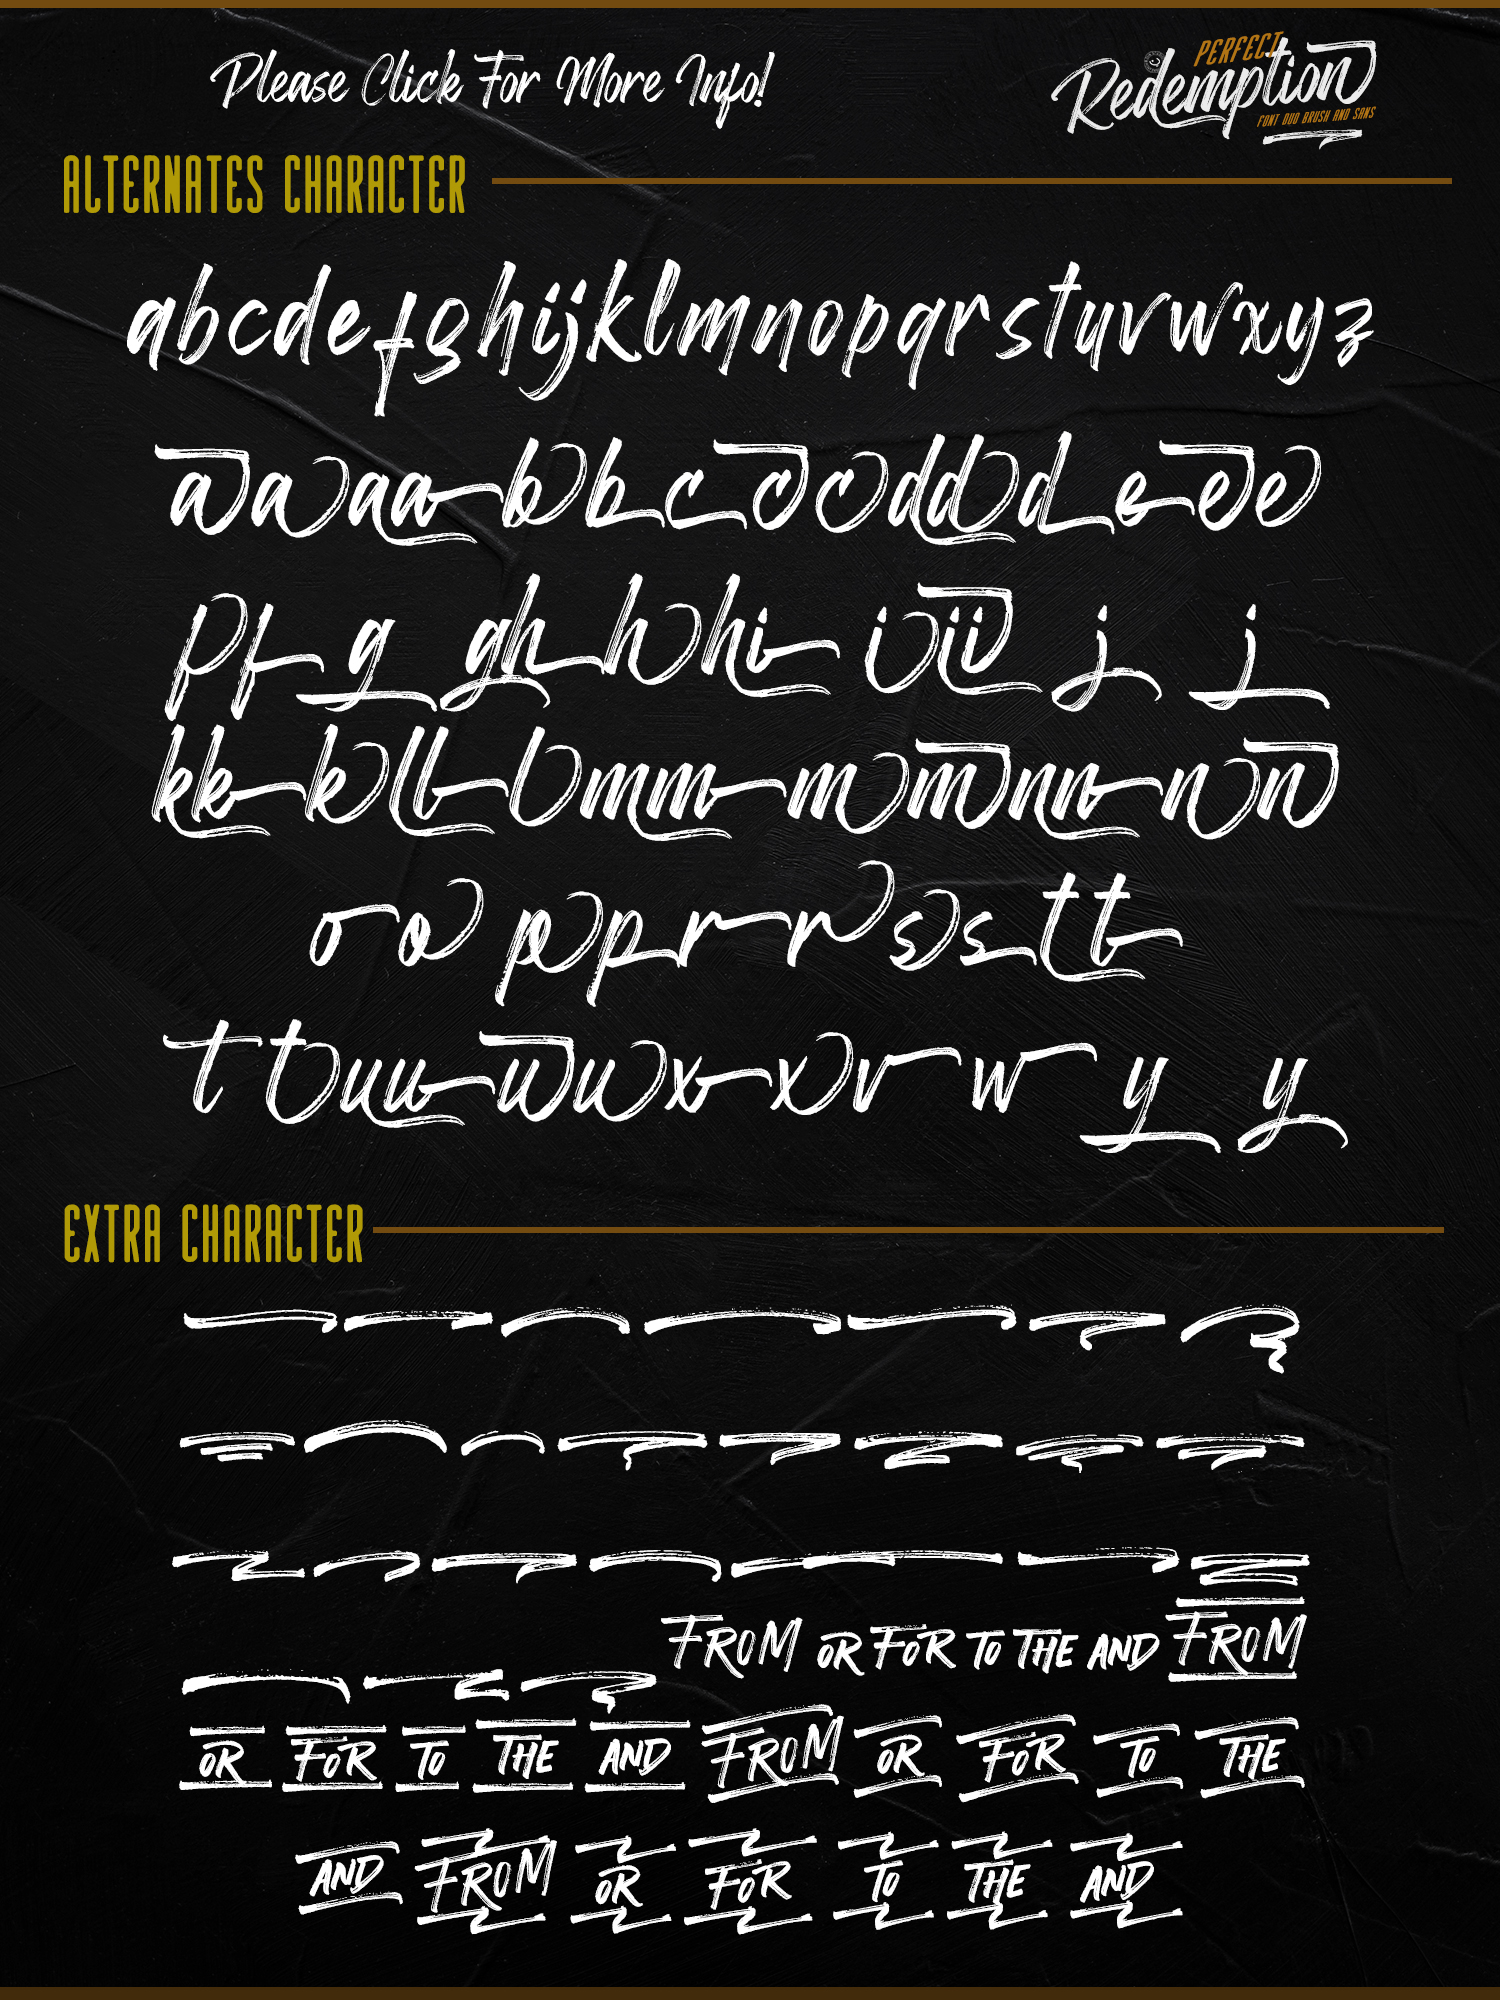 Please Click For More Info!
PERFECT
Redemption
FONT DUO BRUSH AND SANS
ALTERNATES CHARACTER
abcdefghijklmnopqrstuvwxyz
a a a a b b c c c d d d e e e
f f g g h h h i i i i j j
k k k l l l m m m m n n n n
o o p p r r s s t t
t t u u u u x x v w y y
EXTRA CHARACTER
FROM OR FOR TO THE AND FROM
OR FOR TO THE AND FROM OR FOR TO THE
AND FROM OR FOR TO THE AND